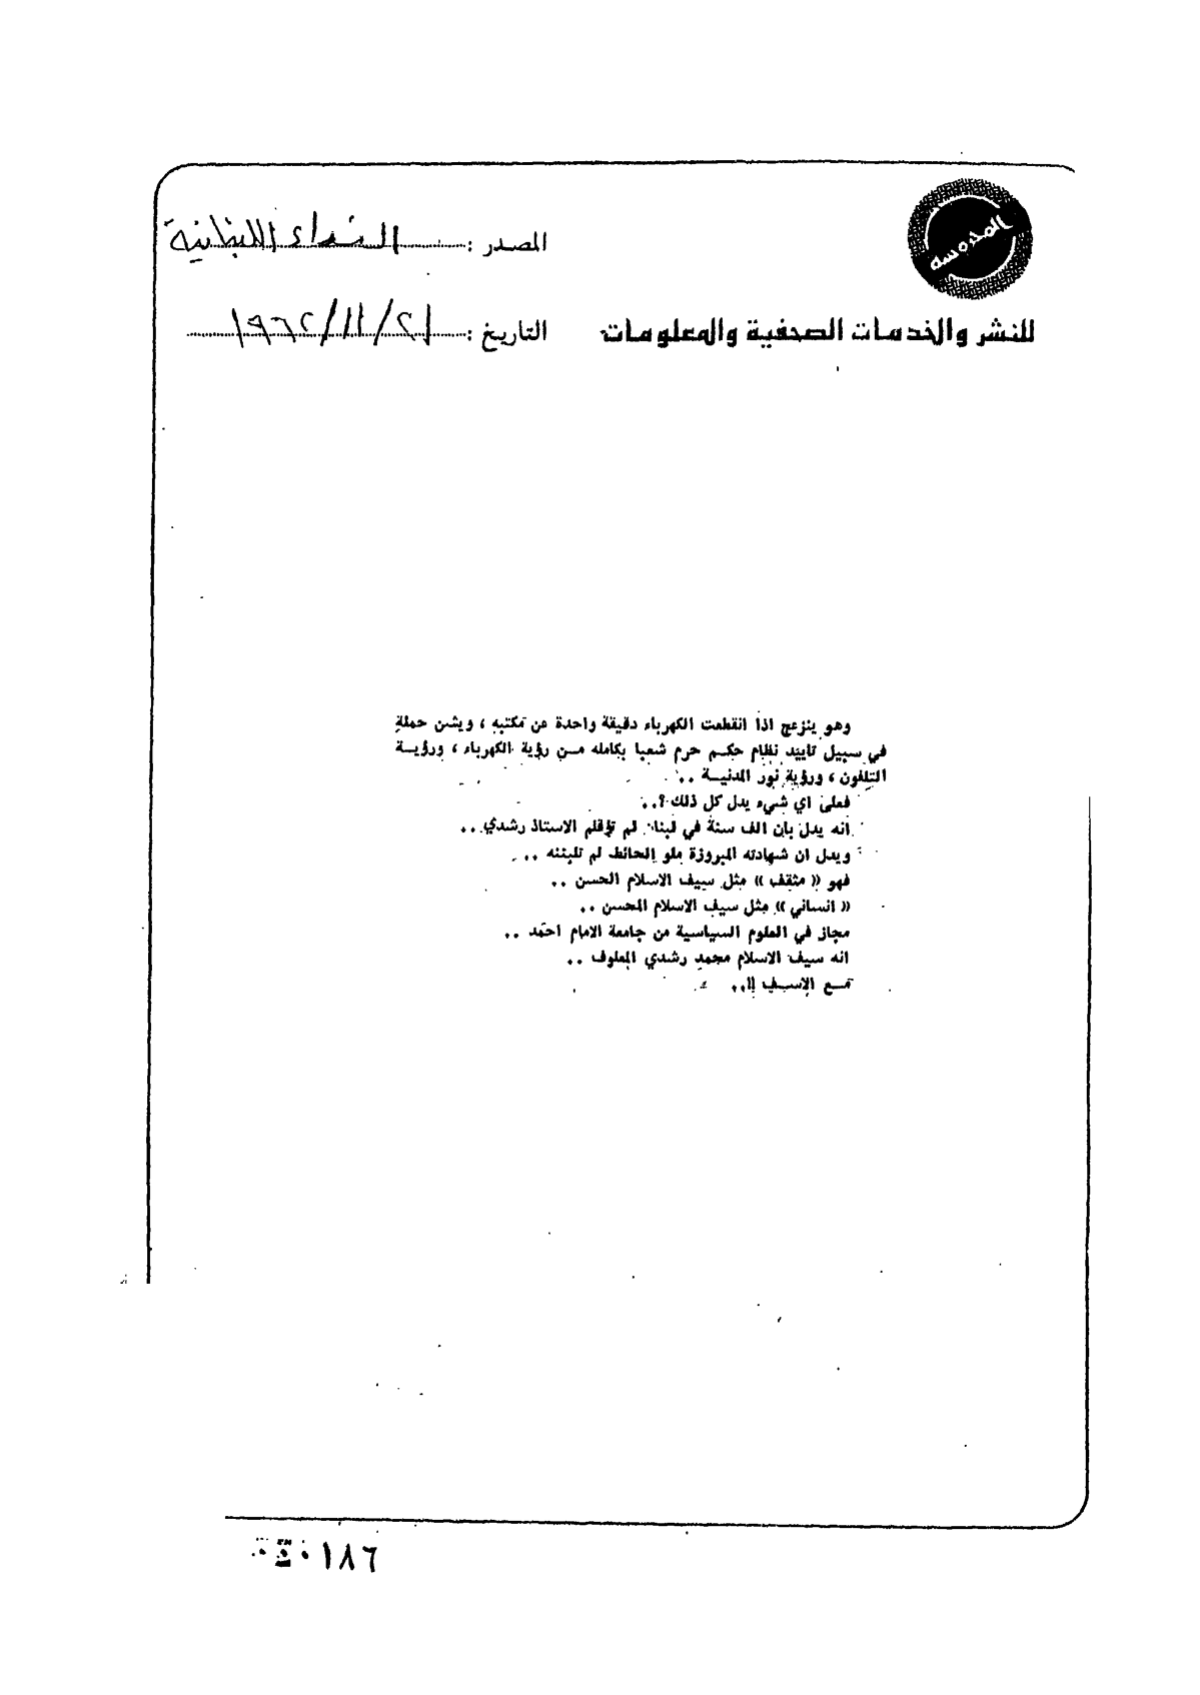 المدرسة
للنشر والخدمات الصحفية والمعلومات
المصدر : النداء اللبنانية
التاريخ : ٢١/١١/١٩٦٢
وهو ينزعج اذا انقطعت الكهرباء دقيقة واحدة عن مكتبه ، ويشن حملة
في سبيل تأييد نظام حكم حرم شعبا بكامله من رؤية الكهرباء ، ورؤية
التلفون ، ورؤية نور المدنية ..
فعلى اي شيء يدل كل ذلك ؟..
انه يدل بان الف سنة في لبنان لم تؤقلم الاستاذ رشدي ..
ويدل ان شهادته المبروزة ملو الحائط لم تلبننه ..
فهو « مثقف » مثل سيف الاسلام الحسن ..
« انساني » مثل سيف الاسلام المحسن ..
مجاز في العلوم السياسية من جامعة الامام احمد ..
انه سيف الاسلام محمد رشدي المعلوف ..
مع الاسف !!..
١٨٦